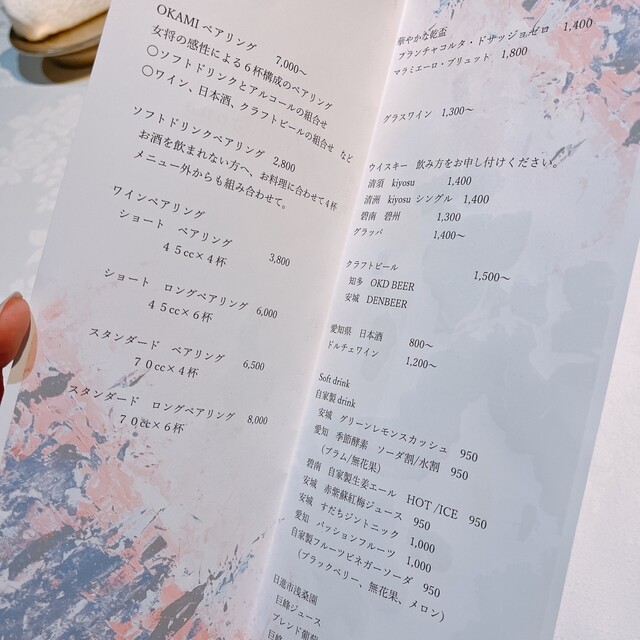 OKAMI ペアリング 7,000〜
女将の感性による6杯構成のペアリング
○ソフトドリンクとアルコールの組合せ
○ワイン、日本酒、クラフトビールの組合せ など
ソフトドリンクペアリング 2,800
お酒を飲まれない方へ、お料理に合わせて4杯
メニュー外からも組み合わせて。
ワインペアリング
ショート ペアリング 3,800
45cc×4杯
ショート ロングペアリング 6,000
45cc×6杯
スタンダード ペアリング 6,500
70cc×4杯
スタンダード ロングペアリング 8,000
70cc×6杯
華やかな乾盃
フランチャコルタ・ドサッジョゼロ 1,400
マラミエーロ・ブリュット 1,800
グラスワイン 1,300〜
ウイスキー 飲み方をお申し付けください。
清須 kiyosu 1,400
清洲 kiyosu シングル 1,400
碧南 碧州 1,300
グラッパ 1,400〜
クラフトビール 1,500〜
知多 OKD BEER
安城 DENBEER
愛知県 日本酒 800〜
ドルチェワイン 1,200〜
Soft drink
自家製 drink
安城 グリーンレモンスカッシュ 950
愛知 季節酵素 ソーダ割/水割 950
(プラム/無花果)
碧南 自家製生姜エール HOT /ICE 950
安城 赤紫蘇紅梅ジュース 950
安城 すだちジントニック 1,000
愛知 パッションフルーツ 1,000
自家製フルーツビネガーソーダ 950
(ブラックベリー、無花果、メロン)
日進市浅桑園
巨峰ジュース
ブレンド葡萄
巨峰